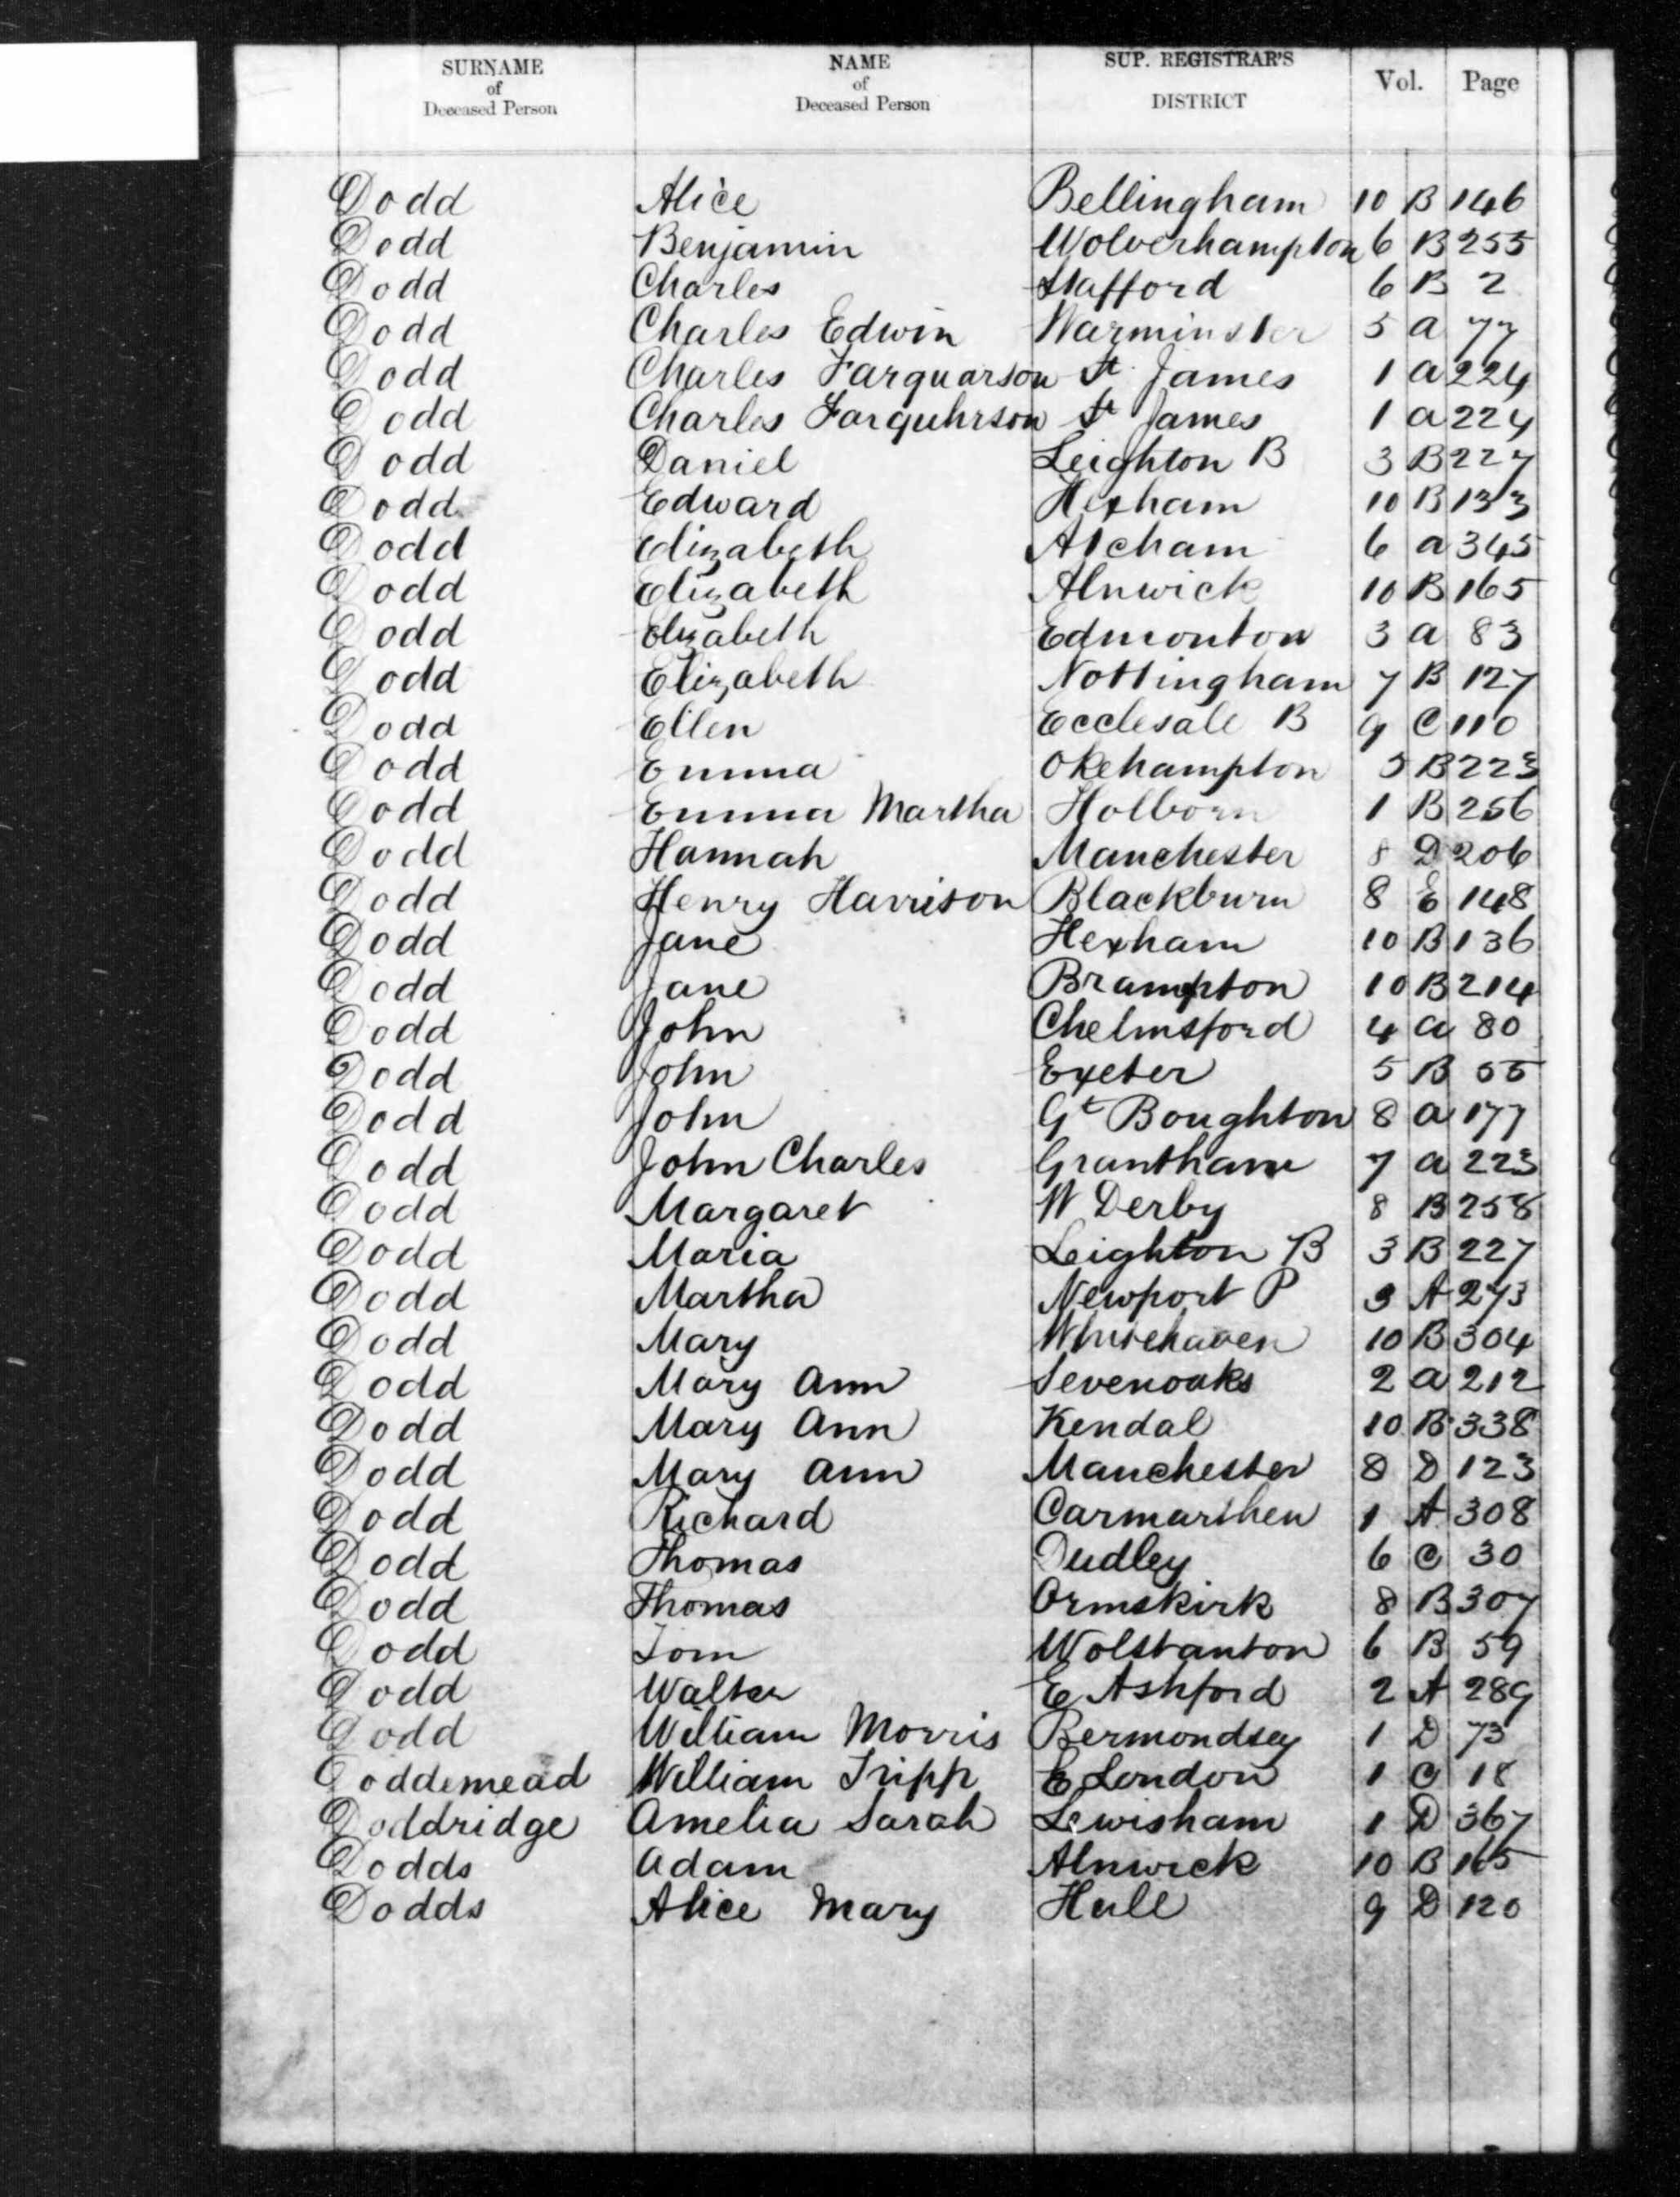 SURNAME of Deceased Person NAME of Deceased Person SUP. REGISTRAR'S DISTRICT Vol. Page
Dodd Alice Bellingham 10 B 146
Dodd Benjamin Wolverhampton 6 B 255
Dodd Charles Stafford 6 B 2
Dodd Charles Edwin Warminster 5 a 77
Dodd Charles Farquarson St James 1 a 224
Dodd Charles Farquhrson St James 1 a 224
Dodd Daniel Leighton B 3 B 227
Dodd Edward Hexham 10 B 133
Dodd Elizabeth Atcham 6 a 345
Dodd Elizabeth Alnwick 10 B 165
Dodd Elizabeth Edmonton 3 a 83
Dodd Elizabeth Nottingham 7 B 127
Dodd Ellen Ecclesall B 9 C 110
Dodd Emma Okehampton 5 B 223
Dodd Emma Martha Holborn 1 B 256
Dodd Hannah Manchester 8 D 206
Dodd Henry Harrison Blackburn 8 E 148
Dodd Jane Hexham 10 B 136
Dodd Jane Brampton 10 B 214
Dodd John Chelmsford 4 a 80
Dodd John Exeter 5 B 55
Dodd John Gt Boughton 8 a 177
Dodd John Charles Grantham 7 a 223
Dodd Margaret W Derby 8 B 258
Dodd Maria Leighton B 3 B 227
Dodd Martha Newport P 3 A 273
Dodd Mary Whitehaven 10 B 304
Dodd Mary Ann Sevenoaks 2 a 212
Dodd Mary Ann Kendal 10 B 338
Dodd Mary Ann Manchester 8 D 123
Dodd Richard Carmarthen 1 A 308
Dodd Thomas Dudley 6 C 30
Dodd Thomas Ormskirk 8 B 307
Dodd Tom Wolstanton 6 B 59
Dodd Walter E Ashford 2 A 289
Dodd William Morris Bermondsey 1 D 73
Doddemead William Tripp E London 1 C 18
Doddridge Amelia Sarah Lewisham 1 D 367
Dodds Adam Alnwick 10 B 165
Dodds Alice Mary Hull 9 D 120